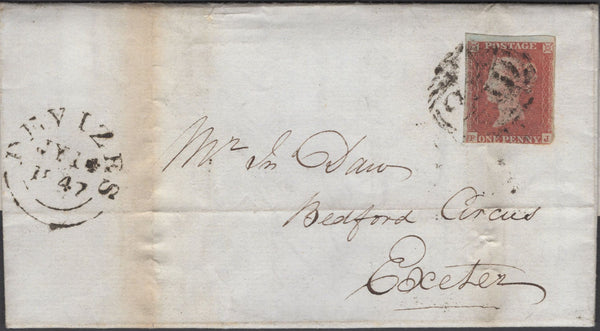 POSTAGE
ONE PENNY
DEVIZES
JY 14
1847
Mr Jn Daw
Bedford Circus
Exeter